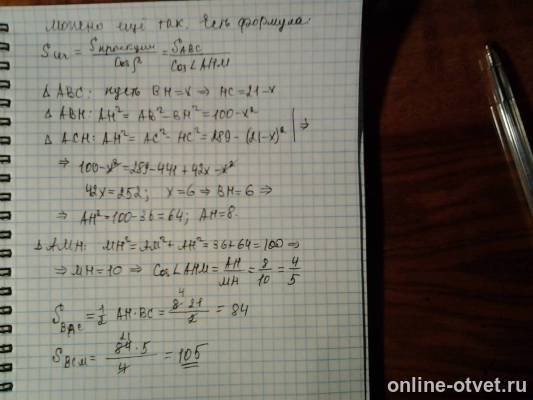 Можно ещё так. Есть формула:
Sсеч = Sпроекции/Cosβ = S_ABC/Cos∠AHM
Δ ABC: пусть BH=x ⇒ HC=21-x
Δ ABH: AH²= AB²-BH²=100-x²
Δ ACH: AH²= AC²-HC²=289-(21-x)² | ⇒
⇒ 100-x²=289-441+42x-x²
42x=252; x=6 ⇒ BH=6 ⇒
⇒ AH²=100-36=64; AH=8.
Δ AMH: MH²=AM²+AH²=36+64=100 ⇒
⇒ MH=10 ⇒ Cos∠AHM= AH/MH = 8/10 = 4/5
S_BAC = 1/2 AH·BC = 8·21/2 = 84
S_BCM = 84·5/4 = 105
online-otvet.ru